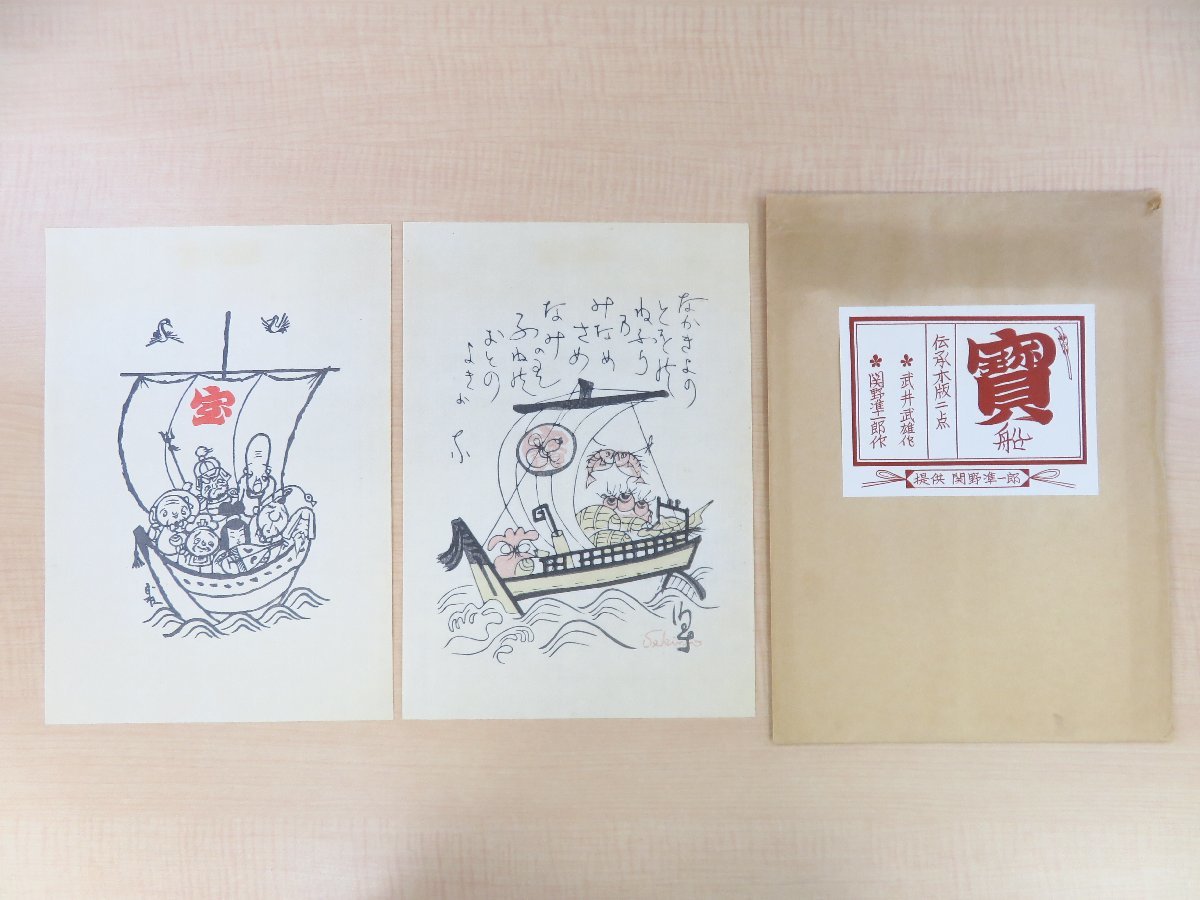 宝
なかきよの
とをの
ねふり
乃
みなめ
さめ
なみのり
ふねの
おとの
よきか
な
Sekino
寶
船
伝承木版二点
＊武井武雄作
＊関野凖一郎作
提供 関野凖一郎